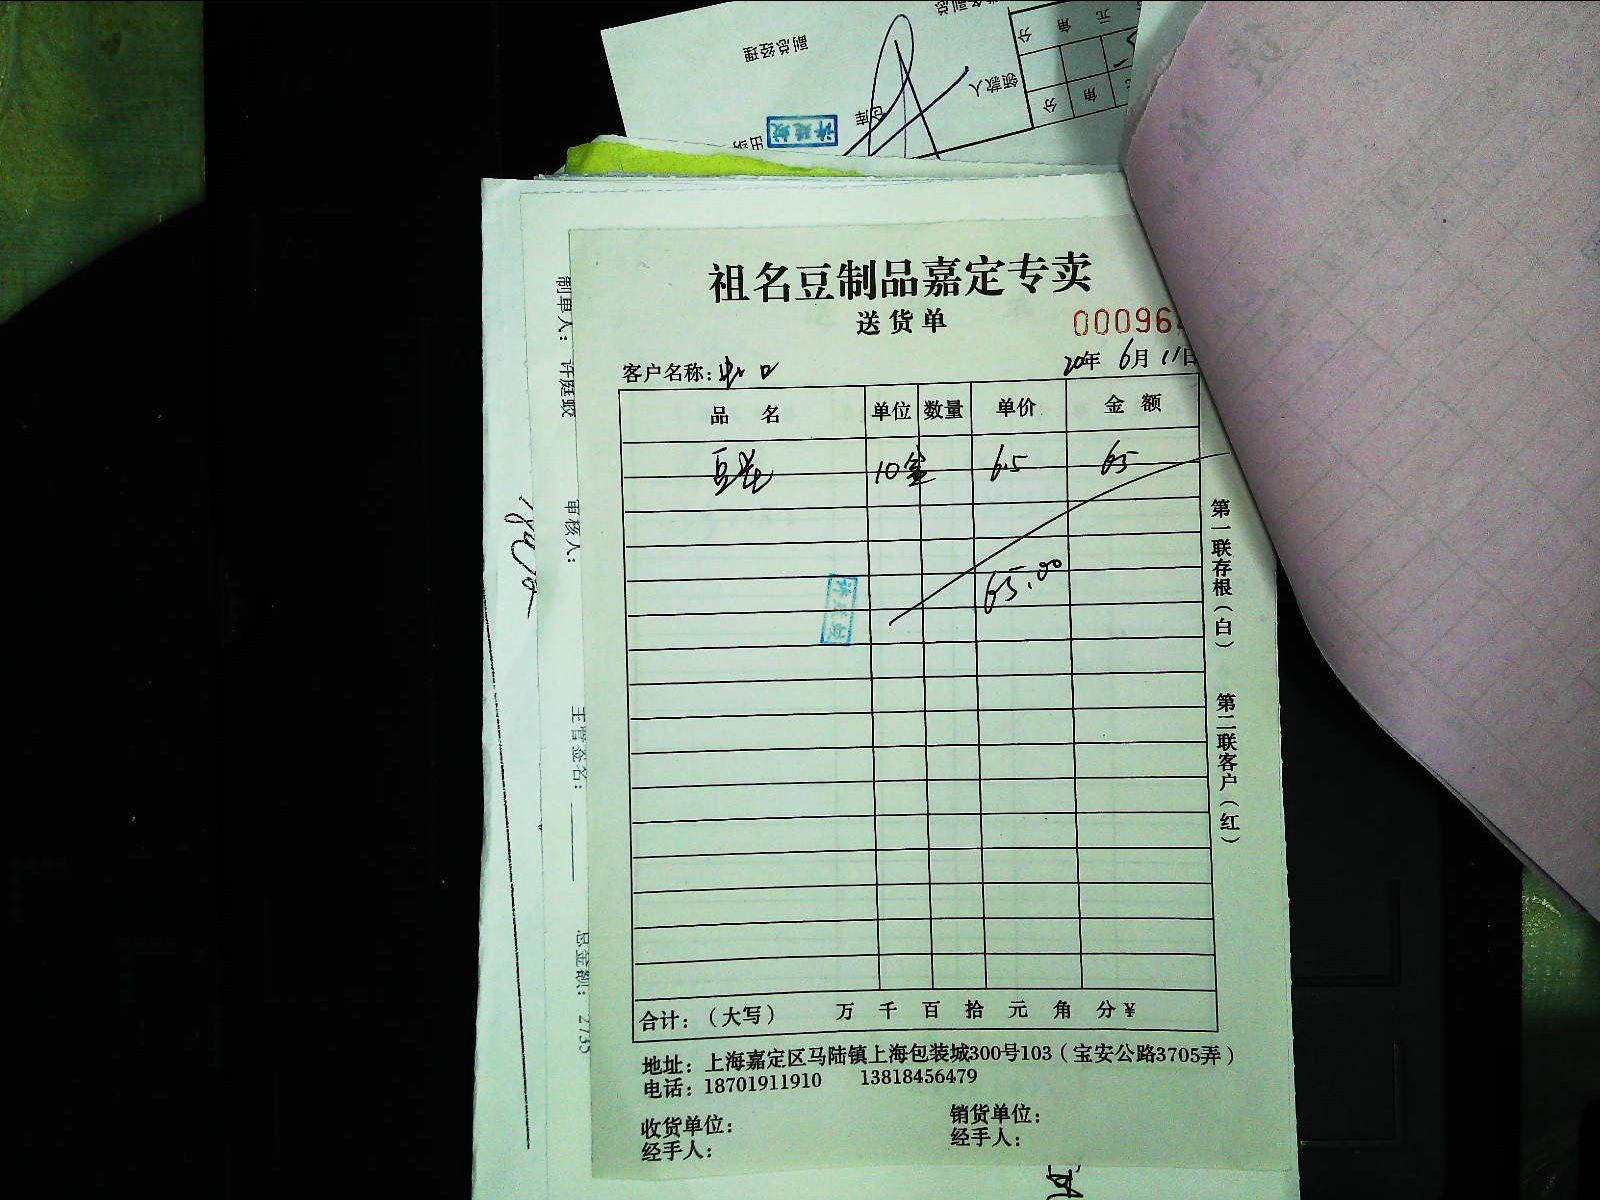 副总经理
领款人
仓库
出纳
元 角 分
角 分
许庭蛟
祖名豆制品嘉定专卖
送货单
00096
客户名称:
20年 6月 11日
品 名 单位 数量 单价 金 额
豆 10盒 6.5 65
65.00
许庭蛟
合计:(大写) 万 千 百 拾 元 角 分 ¥
地址: 上海嘉定区马陆镇上海包装城300号103(宝安公路3705弄)
电话: 18701911910 13818456479
收货单位: 销货单位:
经手人: 经手人:
第一联存根(白) 第二联客户(红)
制单人: 许庭蛟 审核人: 主管签名: 总金额: 2735